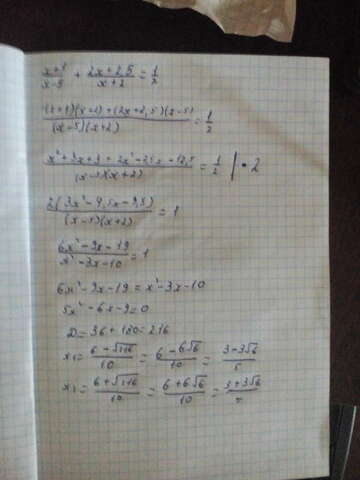 (x+1)/(x-5) + (2x+2,5)/(x+2) = 1/2
((x+1)(x+2)+(2x+2,5)(x-5))/((x-5)(x+2)) = 1/2
(x²+3x+2+2x²-7,5x-12,5)/((x-5)(x+2)) = 1/2 | • 2
2(3x²-4,5x-9,5)/((x-5)(x+2)) = 1
(6x²-9x-19)/(x²-3x-10) = 1
6x²-9x-19 = x²-3x-10
5x²-6x-9=0
D=36+180=216
x₁ = (6-√216)/10 = (6-6√6)/10 = (3-3√6)/5
x₂ = (6+√216)/10 = (6+6√6)/10 = (3+3√6)/5